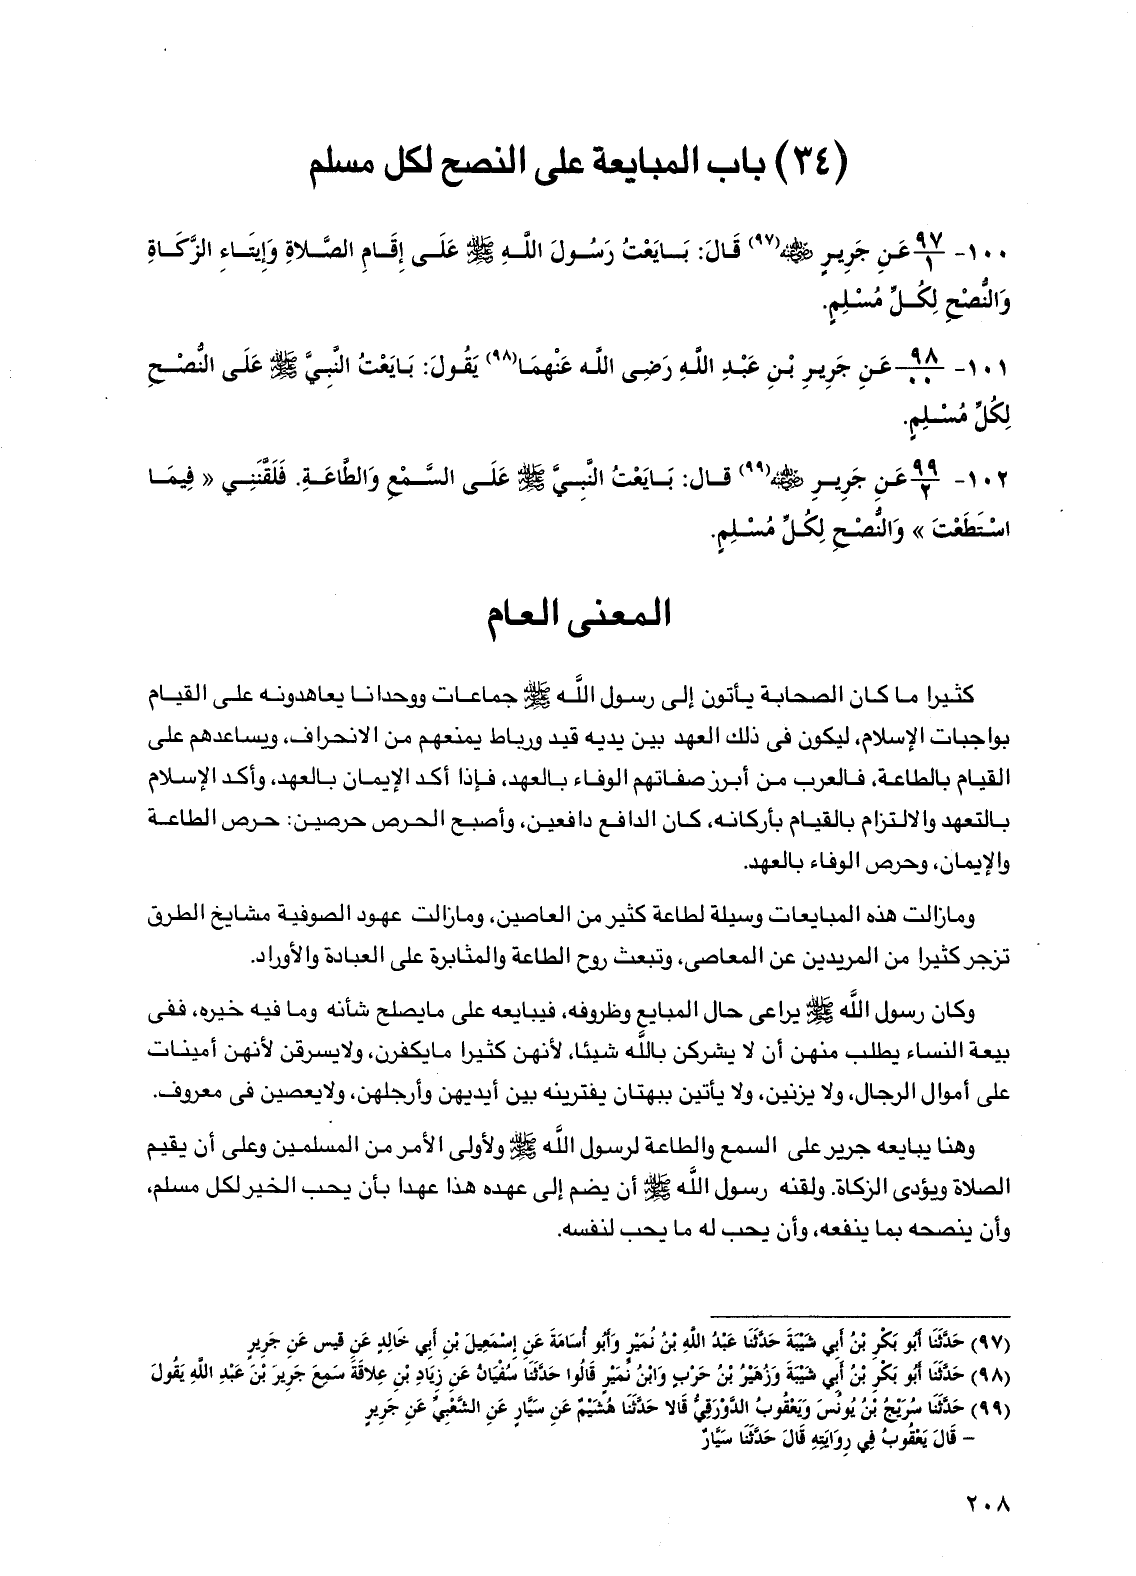 (٣٤) باب المبايعة على النصح لكل مسلم
١٠٠- ٩٧/١ عَنِ جَرِيرٍ ﷺ(٩٧) قَالَ: بَايَعْتُ رَسُولَ اللَّهِ ﷺ عَلَى إِقَامِ الصَّلاةِ وَإِيتَاءِ الزَّكَاةِ
وَالنُّصْحِ لِكُلِّ مُسْلِمٍ.
١٠١- ٩٨/٠٠ عَنِ جَرِيرِ بْنِ عَبْدِ اللَّهِ رَضِى اللَّه عَنْهمَا(٩٨) يَقُولَ: بَايَعْتُ النَّبِيَّ ﷺ عَلَى النُّصْحِ
لِكُلِّ مُسْلِمٍ.
١٠٢- ٩٩/٢ عَنِ جَرِيرِ (٩٩) قال: بَايَعْتُ النَّبِيَّ ﷺ عَلَى السَّمْعِ وَالطَّاعَةِ. فَلَقَّنَنِي « فِيمَا
اسْتَطَعْتَ » وَالنُّصْحِ لِكُلِّ مُسْلِمٍ.
المعنى العام
كثيرا ما كان الصحابة يأتون إلى رسول اللَّه ﷺ جماعات ووحدانا يعاهدونه على القيام
بواجبات الإسلام، ليكون فى ذلك العهد بين يديه قيد ورباط يمنعهم من الانحراف، ويساعدهم على
القيام بالطاعة، فالعرب من أبرز صفاتهم الوفاء بالعهد، فإذا أكد الإيمان بالعهد، وأكد الإسلام
بالتعهد والالتزام بالقيام بأركانه، كان الدافع دافعين، وأصبح الحرص حرصين: حرص الطاعة
والإيمان، وحرص الوفاء بالعهد.
ومازالت هذه المبايعات وسيلة لطاعة كثير من العاصين، ومازالت عهود الصوفية مشايخ الطرق
تزجر كثيرا من المريدين عن المعاصى، وتبعث روح الطاعة والمثابرة على العبادة والأوراد.
وكان رسول اللَّه ﷺ يراعى حال المبايع وظروفه، فيبايعه على مايصلح شأنه وما فيه خيره، ففى
بيعة النساء يطلب منهن أن لا يشركن باللَّه شيئا، لأنهن كثيرا مايكفرن، ولايسرقن لأنهن أمينات
على أموال الرجال، ولا يزنين، ولا يأتين ببهتان يفترينه بين أيديهن وأرجلهن، ولايعصين فى معروف.
وهنا يبايعه جرير على السمع والطاعة لرسول اللَّه ﷺ ولأولى الأمر من المسلمين وعلى أن يقيم
الصلاة ويؤدى الزكاة. ولقنه رسول اللَّه ﷺ أن يضم إلى عهده هذا عهدا بأن يحب الخير لكل مسلم،
وأن ينصحه بما ينفعه، وأن يحب له ما يحب لنفسه.
(٩٧) حَدَّثَنَا أَبُو بَكْرِ بْنُ أَبِي شَيْبَةَ حَدَّثَنَا عَبْدُ اللَّهِ بْنُ نُمَيْرٍ وَأَبُو أُسَامَةَ عَن إِسْمَعِيلَ بْنِ أَبِي خَالِدٍ عَن قيس عَنِ جَرِيرٍ
(٩٨) حَدَّثَنَا أَبُو بَكْرِ بْنُ أَبِي شَيْبَةَ وَزُهَيْرُ بْنُ حَرْبٍ وَابْنُ نُمَيْرٍ قَالُوا حَدَّثَنَا سُفْيَانُ عَن زِيَادِ بْنِ عِلاقَةَ سَمِعَ جَرِيرَ بْنَ عَبْدِ اللَّهِ يَقُولَ
(٩٩) حَدَّثَنَا سُرَيْجُ بْنُ يُونُسَ وَيَعْقُوبُ الدَّوْرَقِيُّ قَالا حَدَّثَنَا هُشَيْمٌ عَن سَيَّارٍ عَنِ الشَّعْبِيِّ عَنِ جَرِيرٍ
– قَالَ يَعْقُوبُ فِي رِوَايَتِهِ قَالَ حَدَّثَنَا سَيَّارٌ
٢٠٨